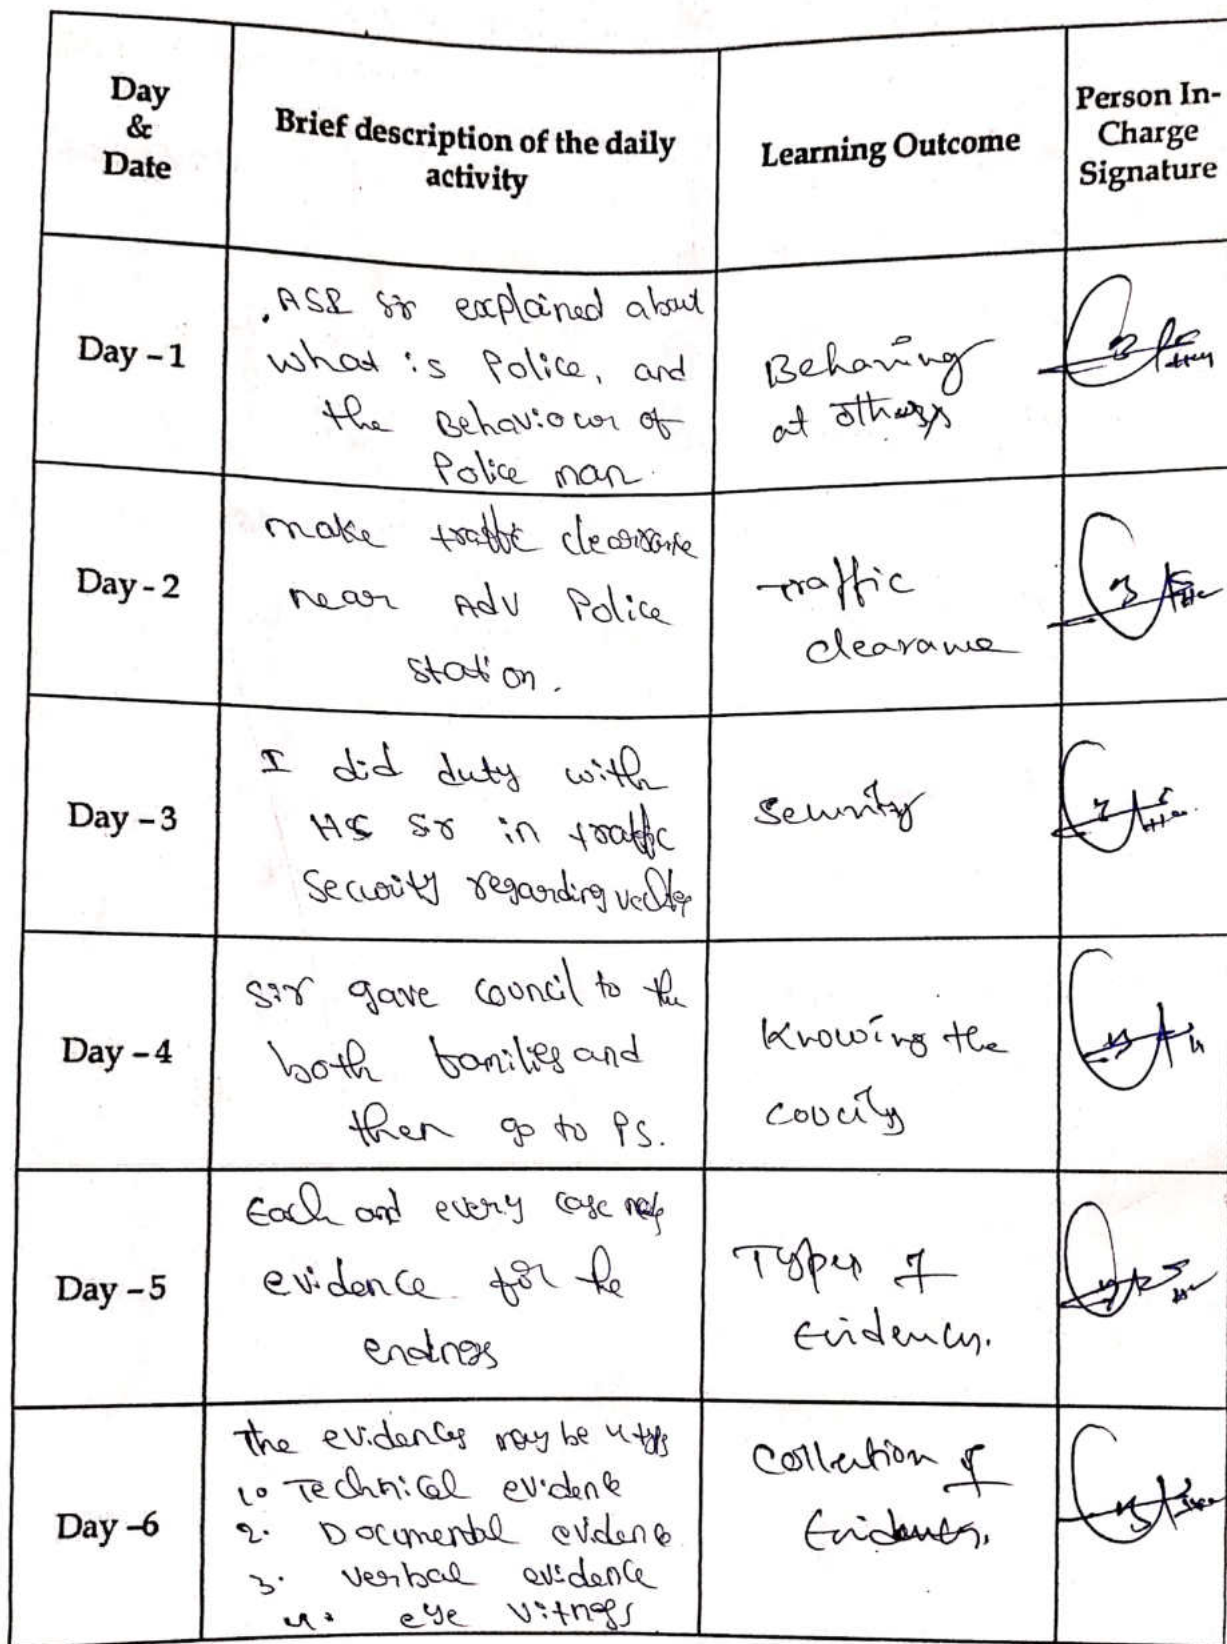 Day
&
Date
Brief description of the daily
activity
Learning Outcome
Person In-
Charge
Signature
Day – 1
explained about
what is Police, and
the Behaviour of
Police man.
Behaving
at others
Day - 2
make traffic clearance
near ADV Police
station.
Traffic
clearance
Day – 3
I did duty with
in traffic
Security regarding
Security
Day – 4
sir gave council to the
both families and
then go to PS.
Knowing the
Day – 5
Each and every case
evidence for the
Types of
Evidences.
Day –6
the evidences may be 4
1. Technical evidence
2. Documental evidence
3. verbal evidence
4. eye vitness
Collection of
Evidences.